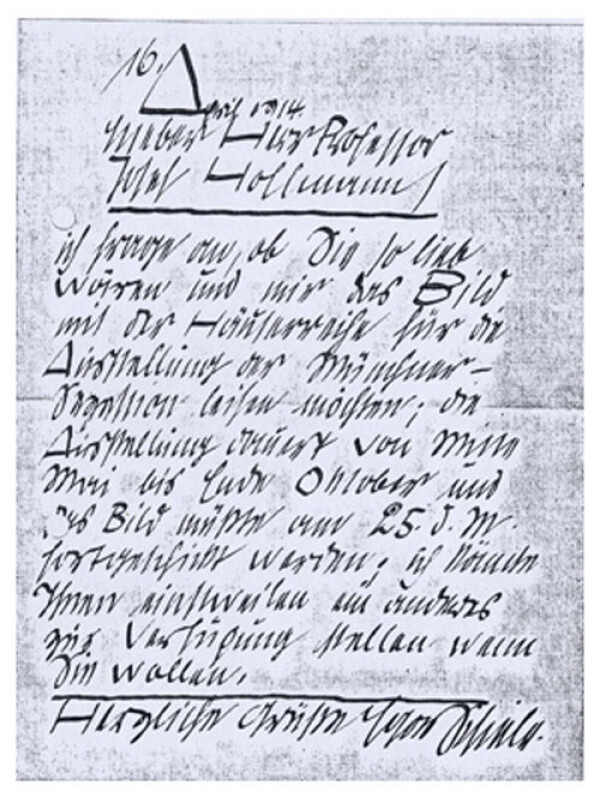 16.
April 1914.
Lieber Herr Professor
Josef Hoffmann!
ich frage an, ob Sie so lieb
wären und mir das Bild
mit der Häuserreihe für die
Ausstellung der Münchner-
Sezession leihen möchten; die
Ausstellung dauert von Mitte
Mai bis Ende Oktober und
das Bild müßte am 25. d. M.
fortgeschickt werden; ich könnte
Ihnen einstweilen ein anderes
zur Verfügung stellen wenn
Sie wollen.
Herzliche Grüße Egon Schiele.